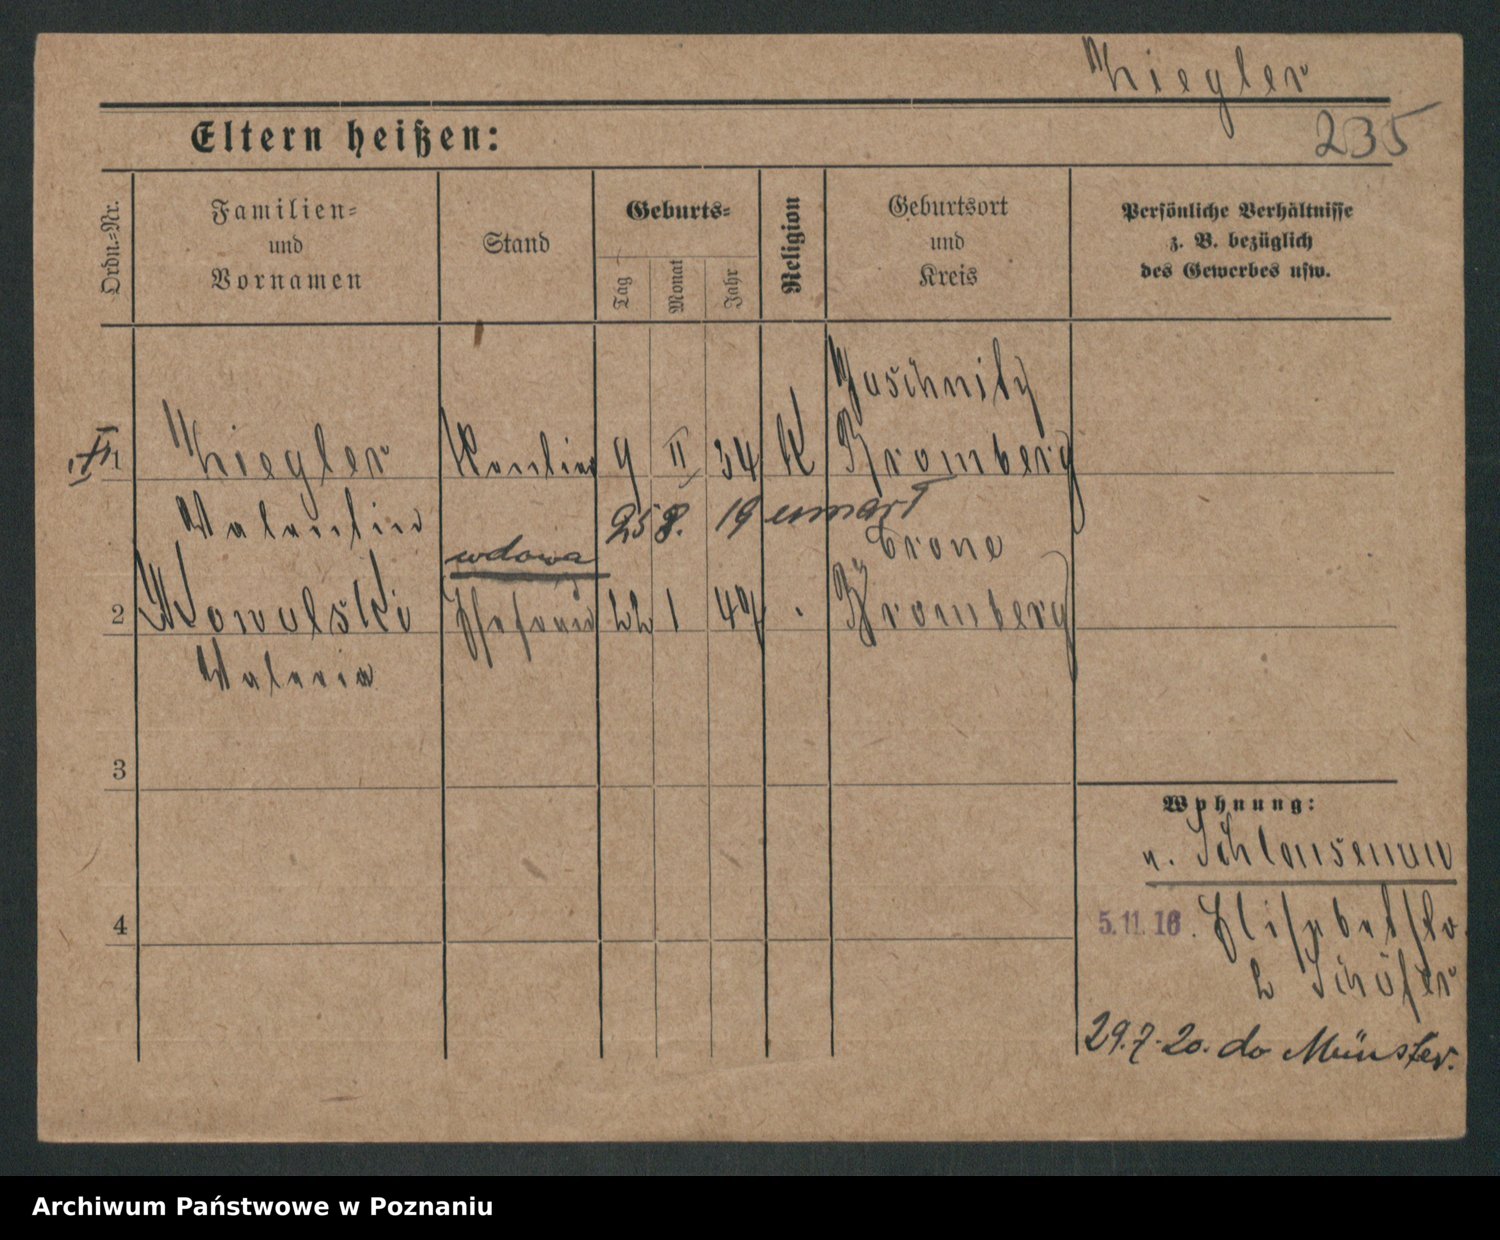 Ziegler
235
Eltern heißen:
Ordn.-Nr.
Familien-
und
Vornamen
Stand
Geburts-
Tag
Monat
Jahr
Religion
Geburtsort
und
Kreis
Persönliche Verhältnisse
z. B. bezüglich
des Gewerbes usw.
1 Ziegler 9 II 34 K Bromberg
Valentin 25 8. 19 umarł
wdowa Crone
2 Kowalski Ehefrau 22 1 49 Bromberg
Valeria
3
4
Wohnung:
n. Schlausenau
5.11.16. Elisabethstr.
b Schäfer
29.7.20. do Münster.
Archiwum Państwowe w Poznaniu